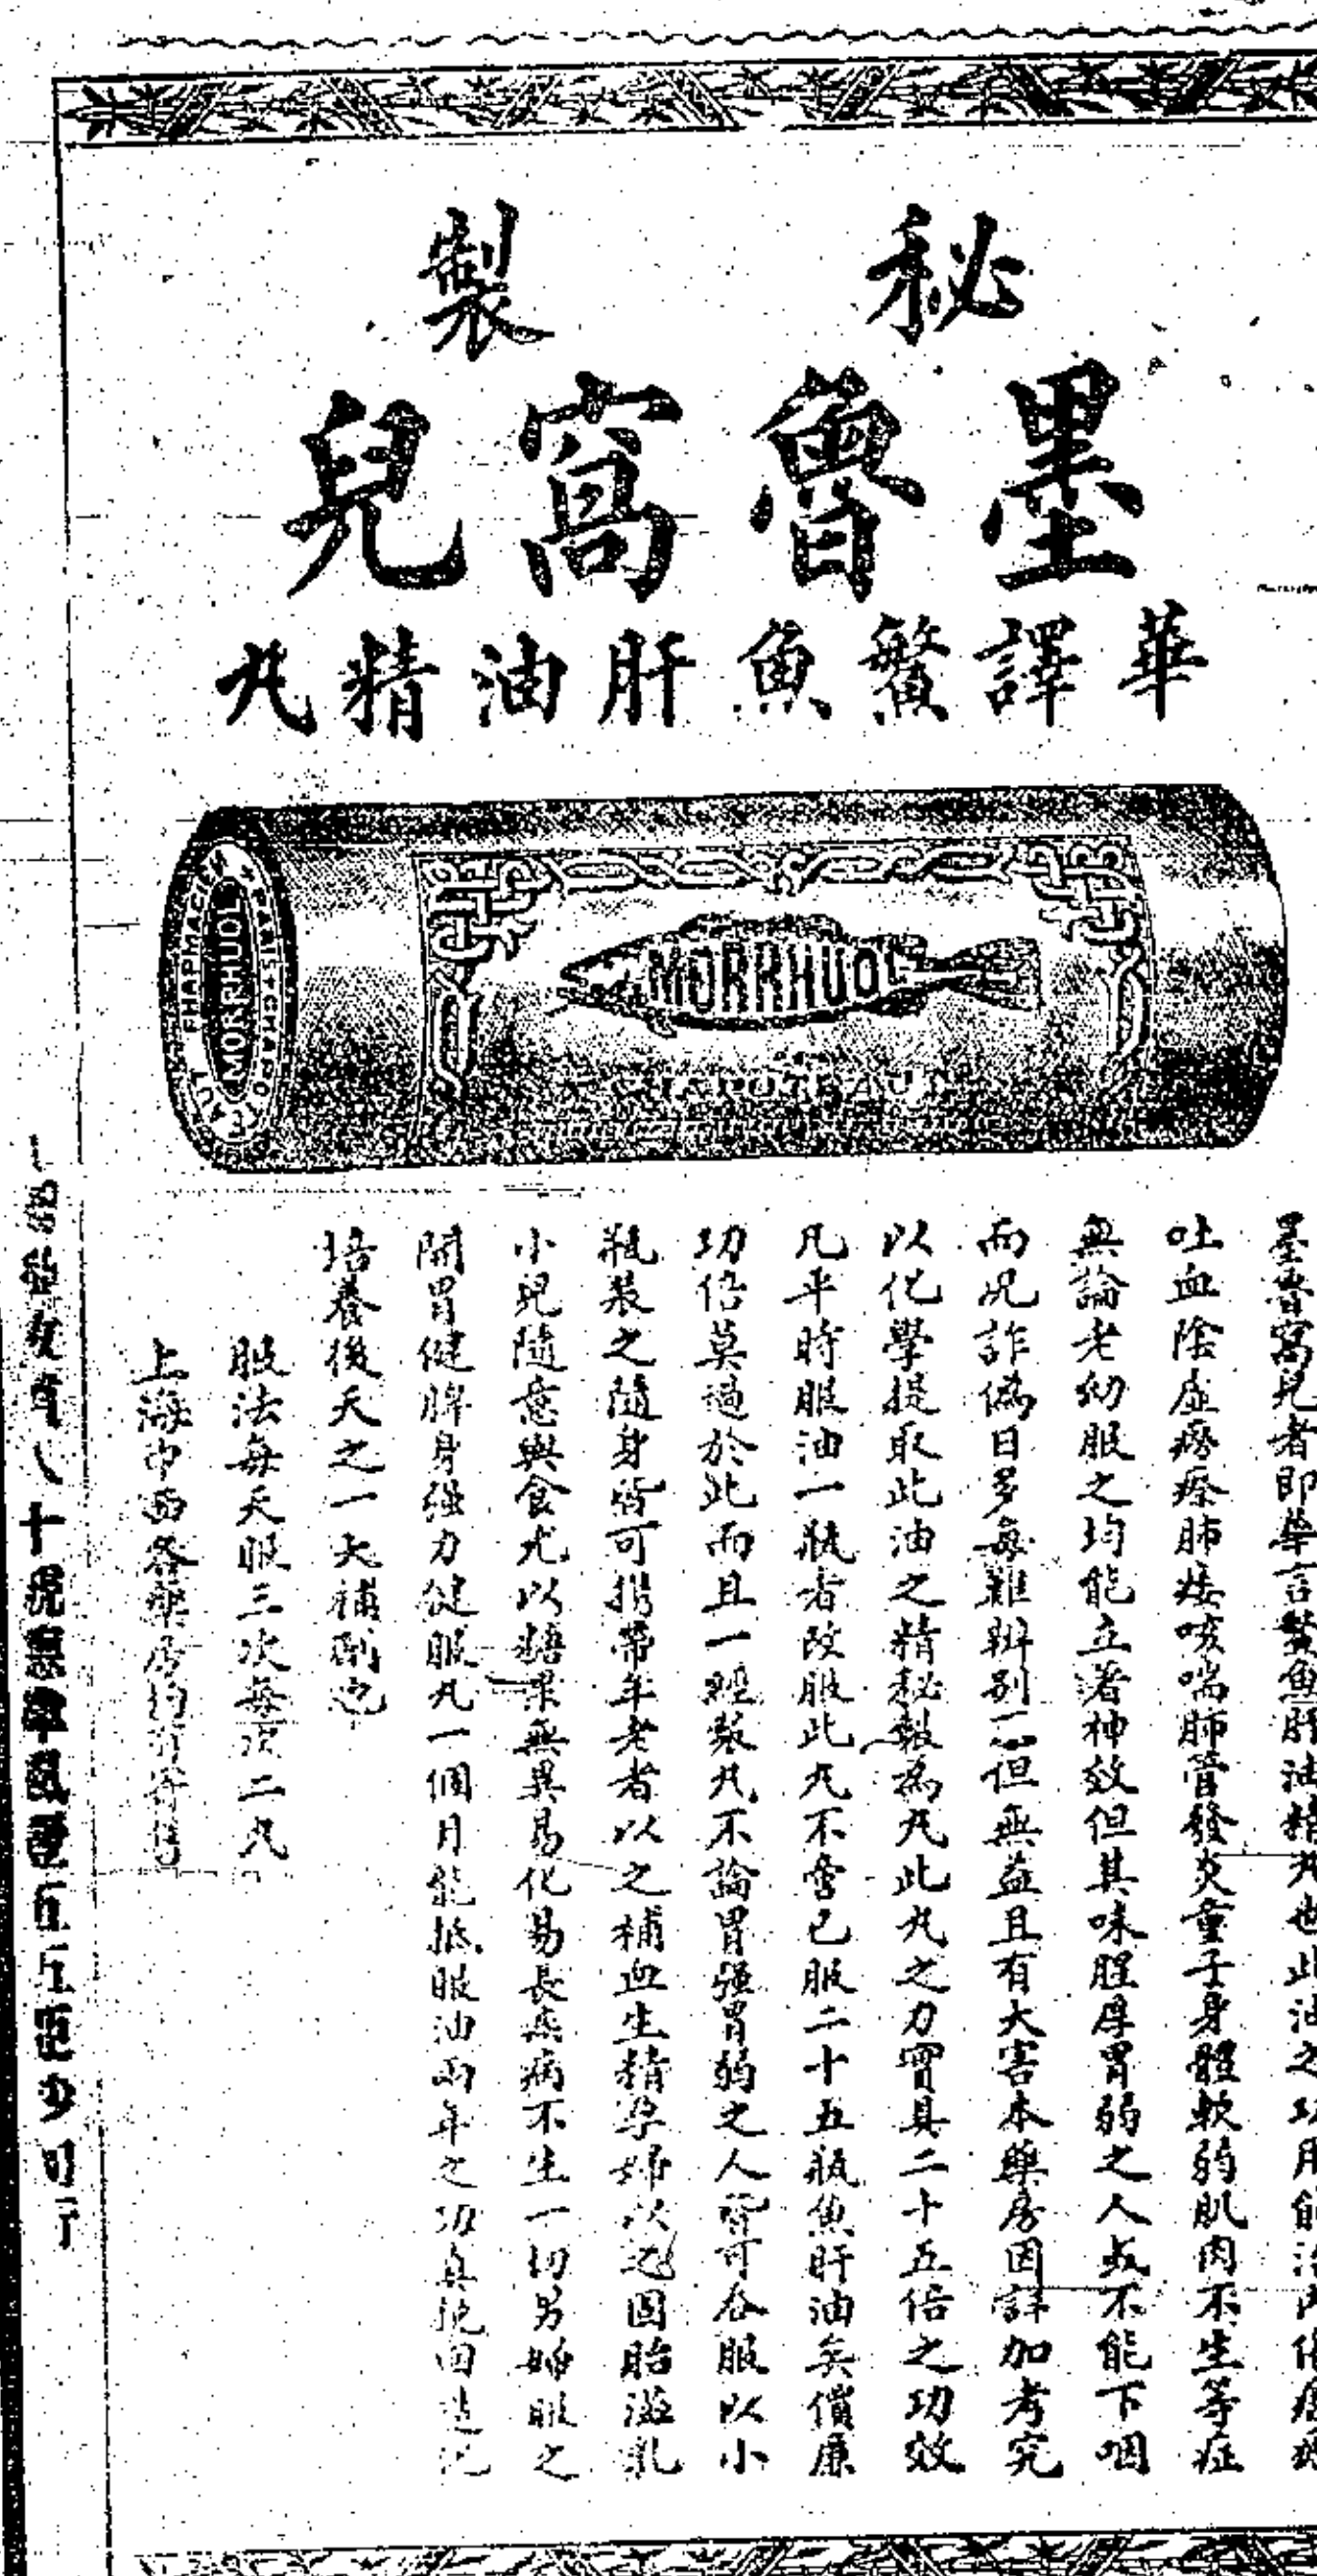 秘製
墨魯窩兒
華譯鱉魚肝油精丸
PHARMACIEN PARIS CHAPOTEAUT
MORRHUOL
MORRHUOL
CHAPOTEAUT
墨魯窩兒者即華言鱉魚肝油精丸也此油之功用能治內傷
吐血陰虛癆瘵肺痿咳喘肺管發炎童子身體軟弱肌肉不生等症
無論老幼服之均能立著神效但其味腥厚胃弱之人或不能下咽
而况詐偽日多每難辨别不但無益且有大害本藥房因詳加考究
以化學提取此油之精秘製為丸此丸之力實具二十五倍之功效
凡平時服油一瓶者改服此丸不啻已服二十五瓶魚肝油矣價廉
功倍莫過於此而且一經製丸不論胃强胃弱之人皆可吞服以小
瓶裝之隨身皆可攜帶年老者以之補血生精孕婦以之固胎滋乳
小兒隨意與食尤以糖果無異易化易長無病不生一切男婦服之
開胃健脾身强力健服丸一個月能抵服油兩年之功真挽回造化
培養後天之一大補劑也
服法每天服三次每次二丸
上海中西各藥房均有寄售